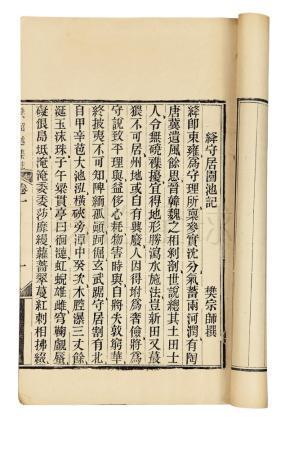 絳守居園池記
樊宗師撰
絳即東雍為守理所稟參實沈分氣蓄兩河潤有陶
唐冀遺風餘思晉韓魏之相剝剖世說總其土田士
人令無磽襍擾宜得地形勝瀉水施法豈新田又蕞
猥不可居州地或自有興廢人因得附為奢儉將為
守說致平理與益侈心耗物害時與自將失敦窮華
終披夷不可知陴緪孤顛跒倔玄武踞守居割有北
自甲辛苞大池泓橫硤旁潭中癸次木腔瀑三丈餘
涎玉沫珠子午梁貫亭曰洄漣虹蜺雄雌穹鞠覷蜃
礙佷島坻淹淹委委莎靡縵蘿薔翠蔓紅刺相拂綴
卷一